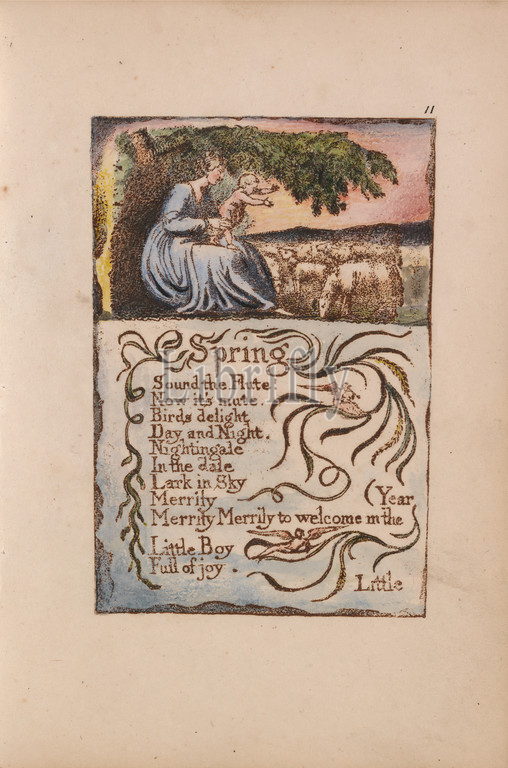 11
Spring
Sound the Flute!
Now it's mute.
Birds delight
Day and Night.
Nightingale
In the dale
Lark in Sky
Merrily
(Year
Merrily Merrily to welcome in the
Little Boy
Full of joy.
Little
Librifly